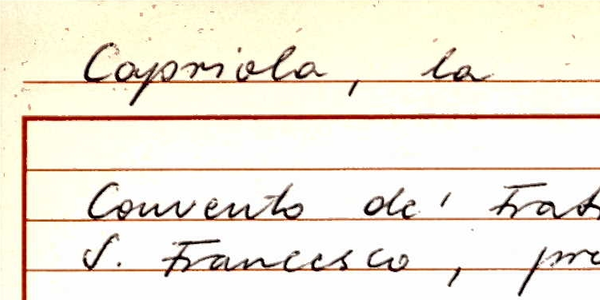 Capriola, la
Convento de' Frat
S. Francesco, pr